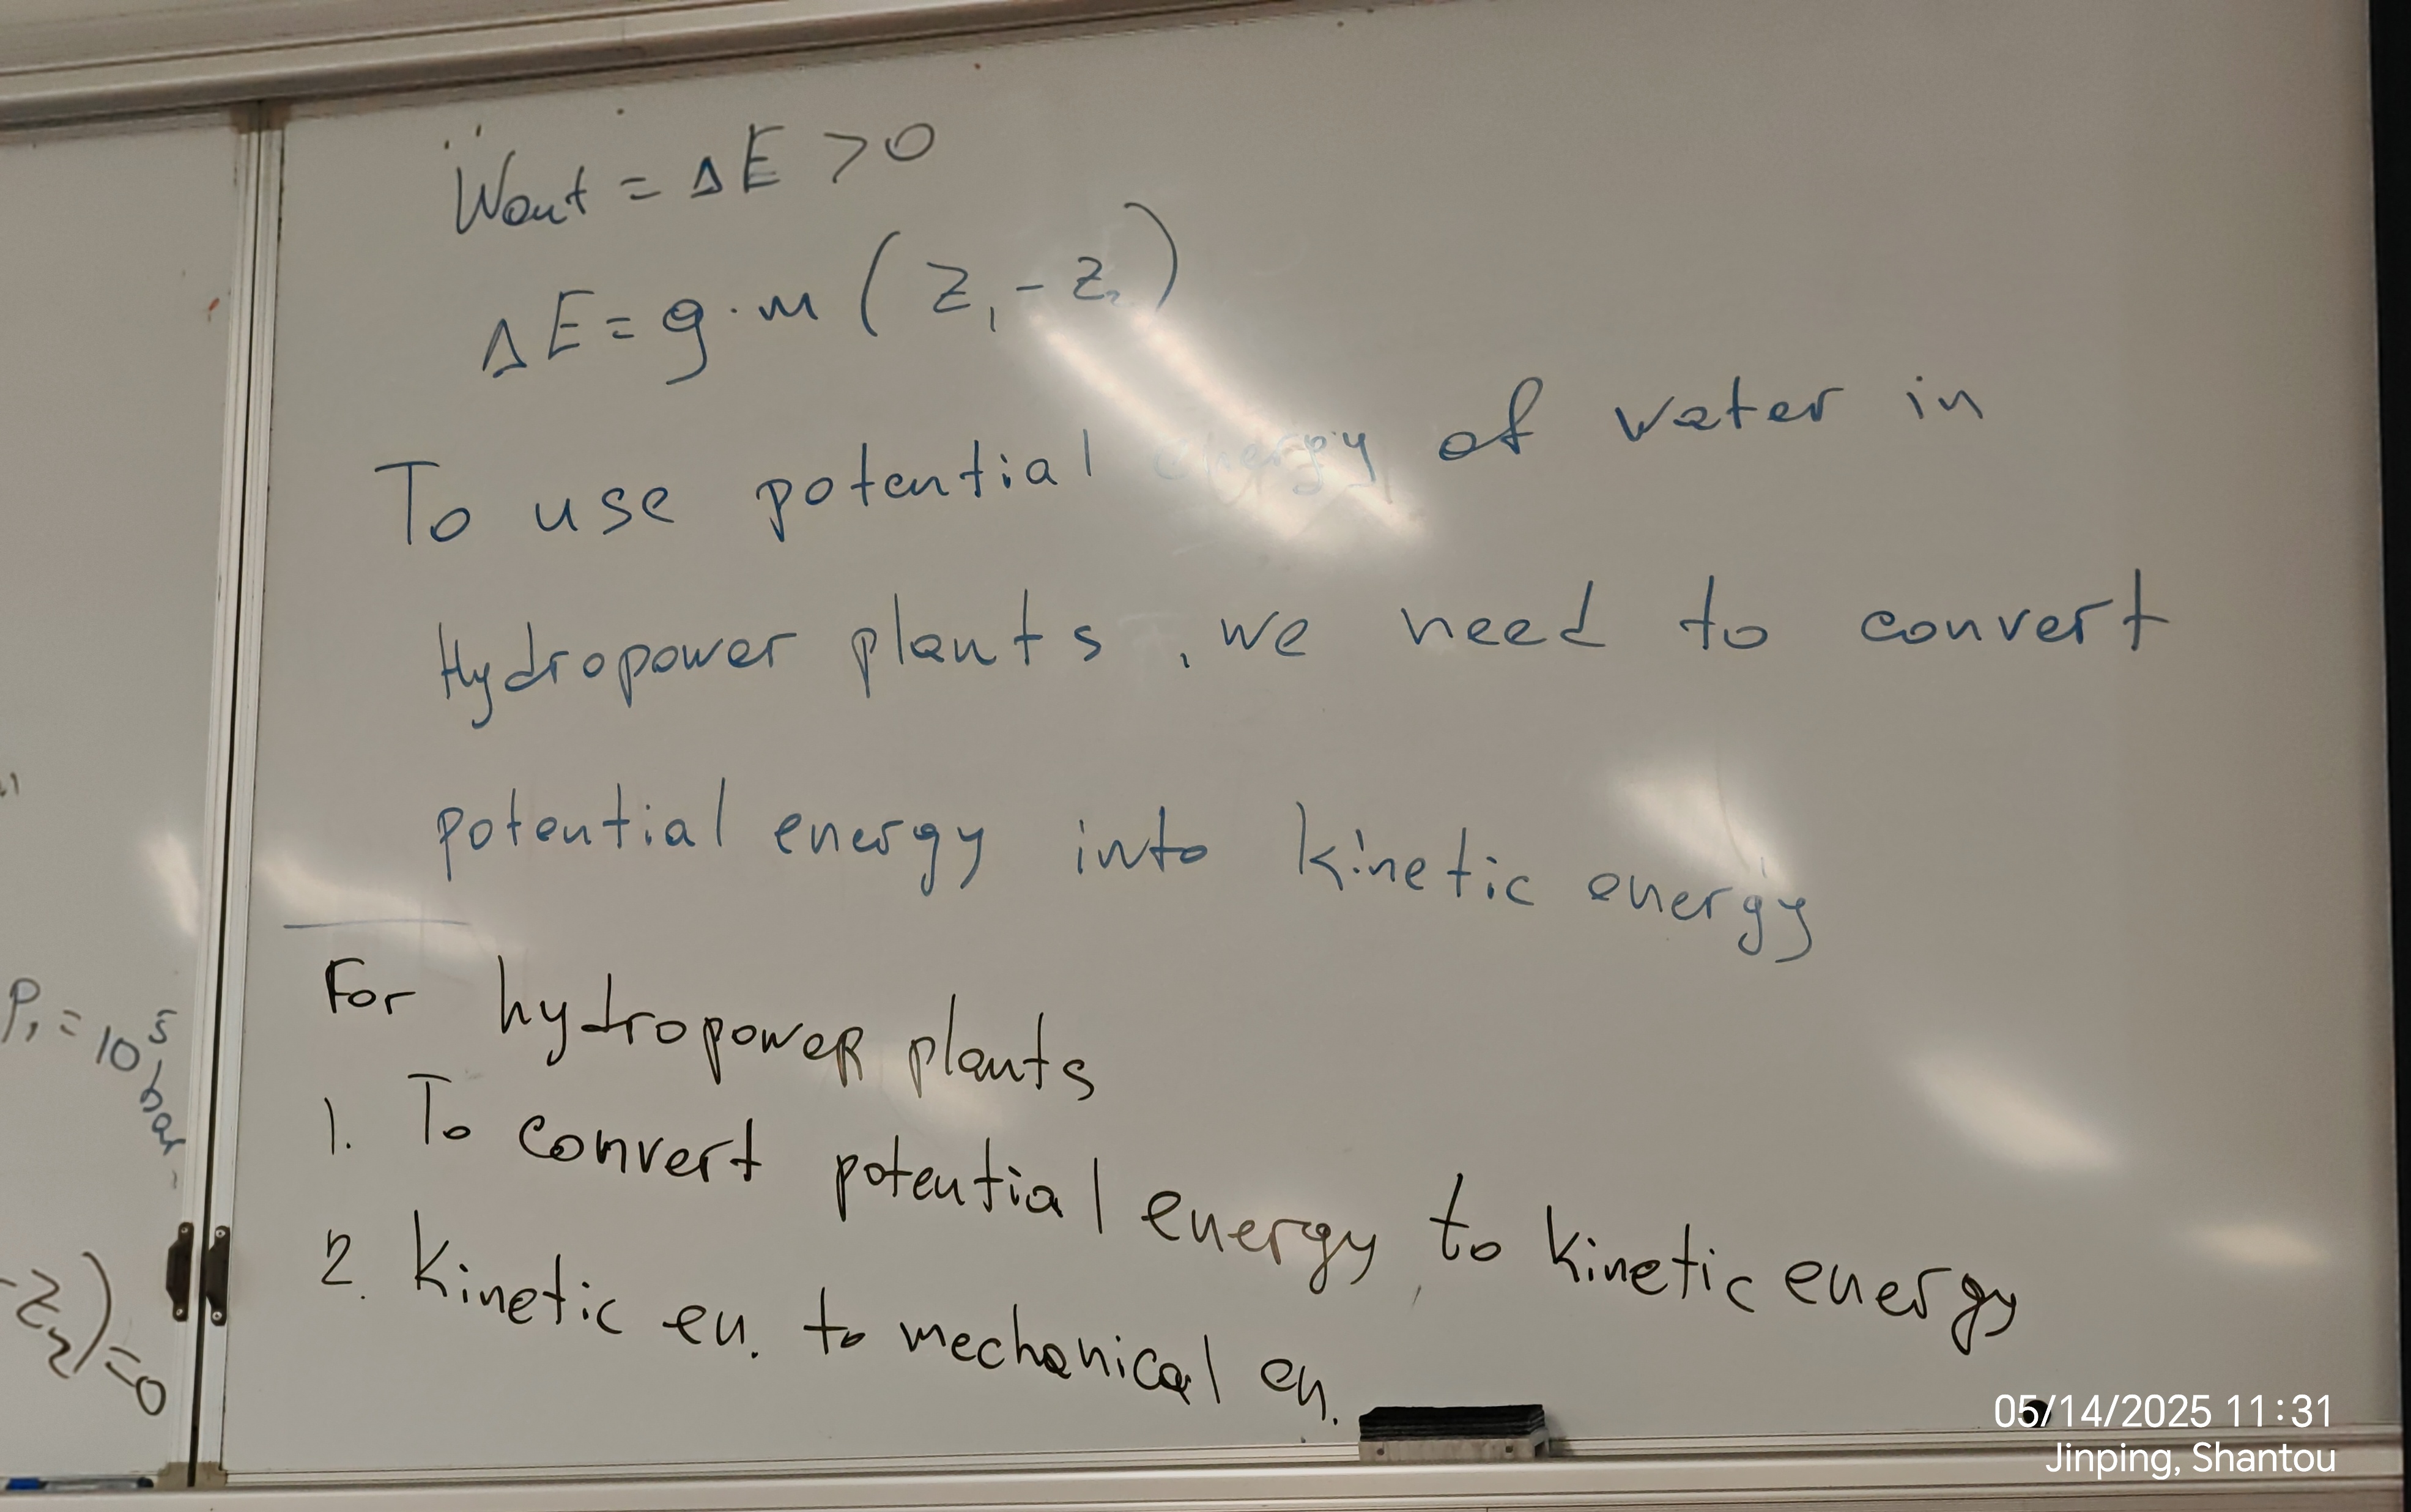 Wout = ΔE >0
ΔE = g·m (z₁ - z₂)
To use potential energy of water in
Hydropower plants, we need to convert
potential energy into kinetic energy
For hydropower plants
1. To convert potential energy to kinetic energy
2. Kinetic en. to mechanical en.
P₁ = 10⁵ bar
-z₂) = 0
05/14/2025 11:31
Jinping, Shantou